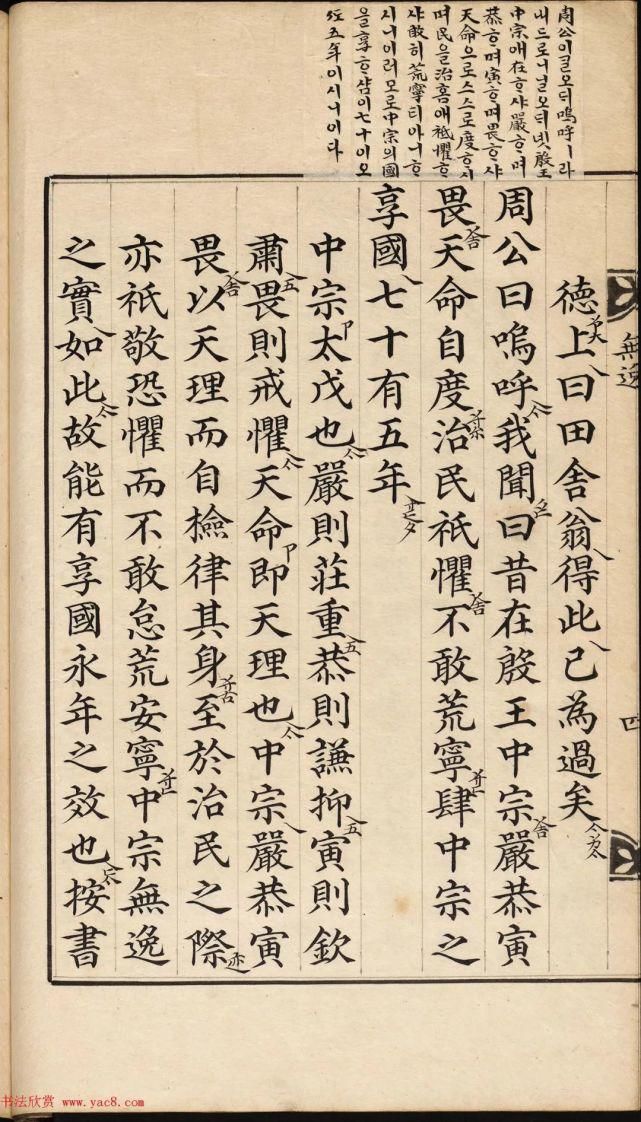 周公이ᄀᆞᆯ오ᄃᆡ嗚呼ㅣ라
내드로니녈오ᄃᆡ녯殷王
中宗애在ᄒᆞ샤嚴ᄒᆞ며
恭ᄒᆞ며寅ᄒᆞ며畏ᄒᆞ샤
天命으로스스로度ᄒᆞ시
며民을治홈애祗懼ᄒᆞ
샤敢히荒寧티아니ᄒᆞ
시니이러모로中宗의國
을享ᄒᆞ샴이七十이오
五年이시니이다
無逸
四
德上曰田舍翁得此已為過矣
周公曰嗚呼我聞曰昔在殷王中宗嚴恭寅
畏天命自度治民祗懼不敢荒寧肆中宗之
享國七十有五年
中宗太戊也嚴則莊重恭則謙抑寅則欽
肅畏則戒懼天命即天理也中宗嚴恭寅
畏以天理而自檢律其身至於治民之際
亦祗敬恐懼而不敢怠荒安寧中宗無逸
之實如此故能有享國永年之效也按書
书法欣赏 www.yac8.com